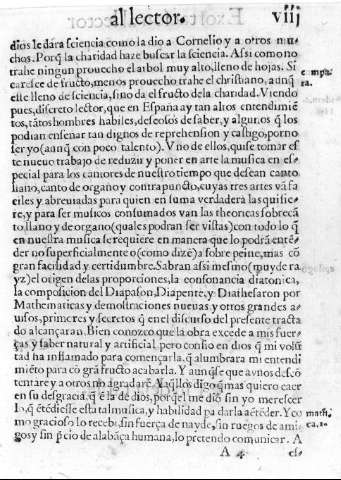 al lector. viij
dios le dara sciencia como la dio a Cornelio y a otros mu-
chos. Porq̃ la charidad haze buscar la sciencia. Assi como no
trahe ningun prouecho el arbol muy alto, lleno de hojas. Si
caresce de fructo, menos prouecho trahe el christiano, aunq̃ compa
este lleno de sciencia, sino da el fructo dela charidad. Viendo ra.
pues, discreto lector, que en España ay tan altos entendimiẽ
tos, tãtos hombres habiles, desseosos de saber, y algunos q̃ los
podian enseñar tan dignos de reprehension y castigo, por no
ser yo (aunq̃ con poco talento). Vno de ellos, quise tomar es
te nueuo trabajo de reduzir y poner en arte la musica en es
pecial para los cantores de nuestro tiempo que dessean canto
llano, canto de organo y contrapuncto, cuyas tres artes vã fa
ciles y abreuiadas para quien en suma verdadera las quisie
re, y para ser musicos consumados van las theoricas sobre cã
to llano y de organo (quales podran ser vistas) con todo lo q̃
en nuestra musica se requiere en manera que lo podrã entẽ
der no superficialmente o (como dizẽ) a sobre peine, mas cõ
gran facilidad y certidumbre. Sabran assi mesmo (muy de ra
yz) el origen delas proporciones, la consonancia diatonica,
la composicion del Diapason, Diapente, y Diathesaron por
Mathematicas y demostraciones nueuas y otros grandes a
uisos, primores y secretos q̃ en el discurso del presente tracta
do alcançaran. Bien conozco que la obra excede a mis fuer-
ças y saber natural y artificial pero confio en dios q̃ mi volũ
tad ha inflamado para començarla, q̃ alumbrara mi entendi
miẽto para cõ grã fructo acabarla. Y aunq̃ se que avnos descõ
tentare y a otros no agradare. Aq̃llos digo q̃ mas quiero caer
en su desgracia, q̃ ẽ la de dios, porq̃ el me dio sin yo merescer
lo, q̃ ẽtẽdiesse esta tal musica, y habilidad pa darla a ẽtẽder. Y co math.
mo gracioso lo recebi, sin fuerça de nayde, sin ruegos de ami ca.10.
gos y sin p̃cio de alabãça humana, lo pretendo comunicar. A
A 4 es